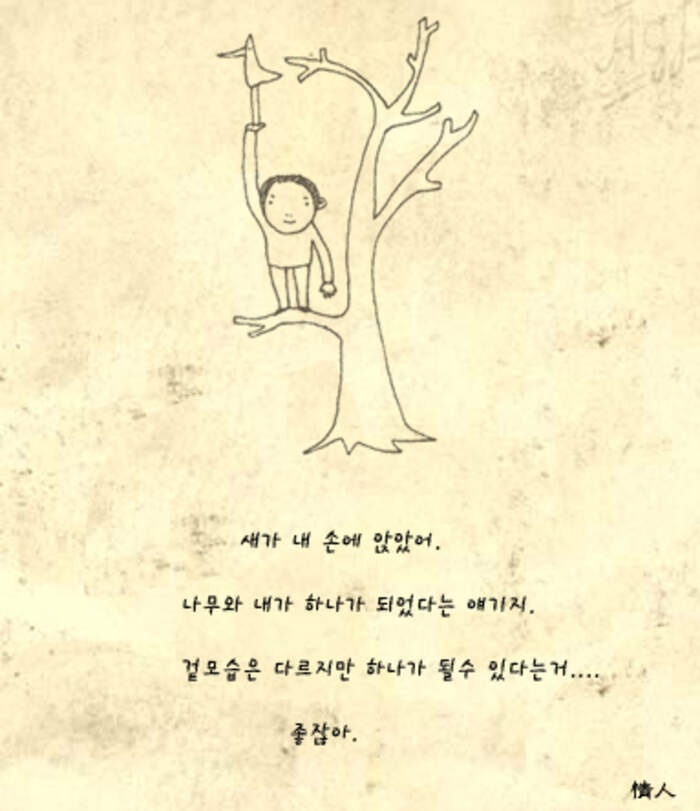 새가 내 손에 앉았어.
나무와 내가 하나가 되었다는 얘기지.
겉모습은 다르지만 하나가 될수 있다는거....
좋잖아.
情人